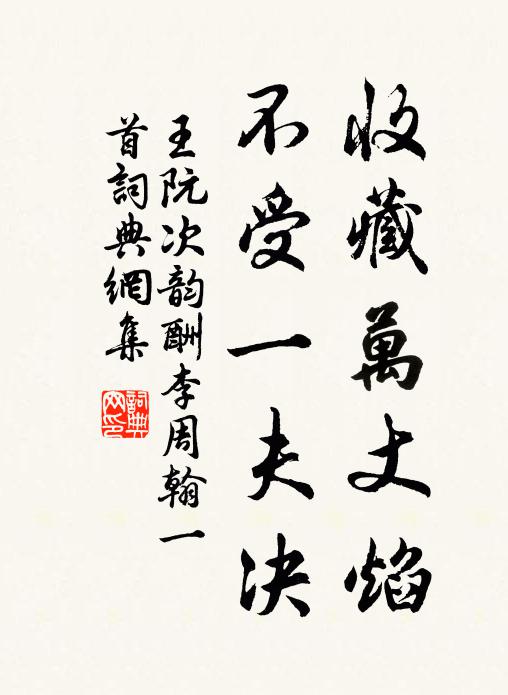 收藏萬丈焰
不受一夫决
王阮次韵酬李周翰一
首詞典網集
詞典网印